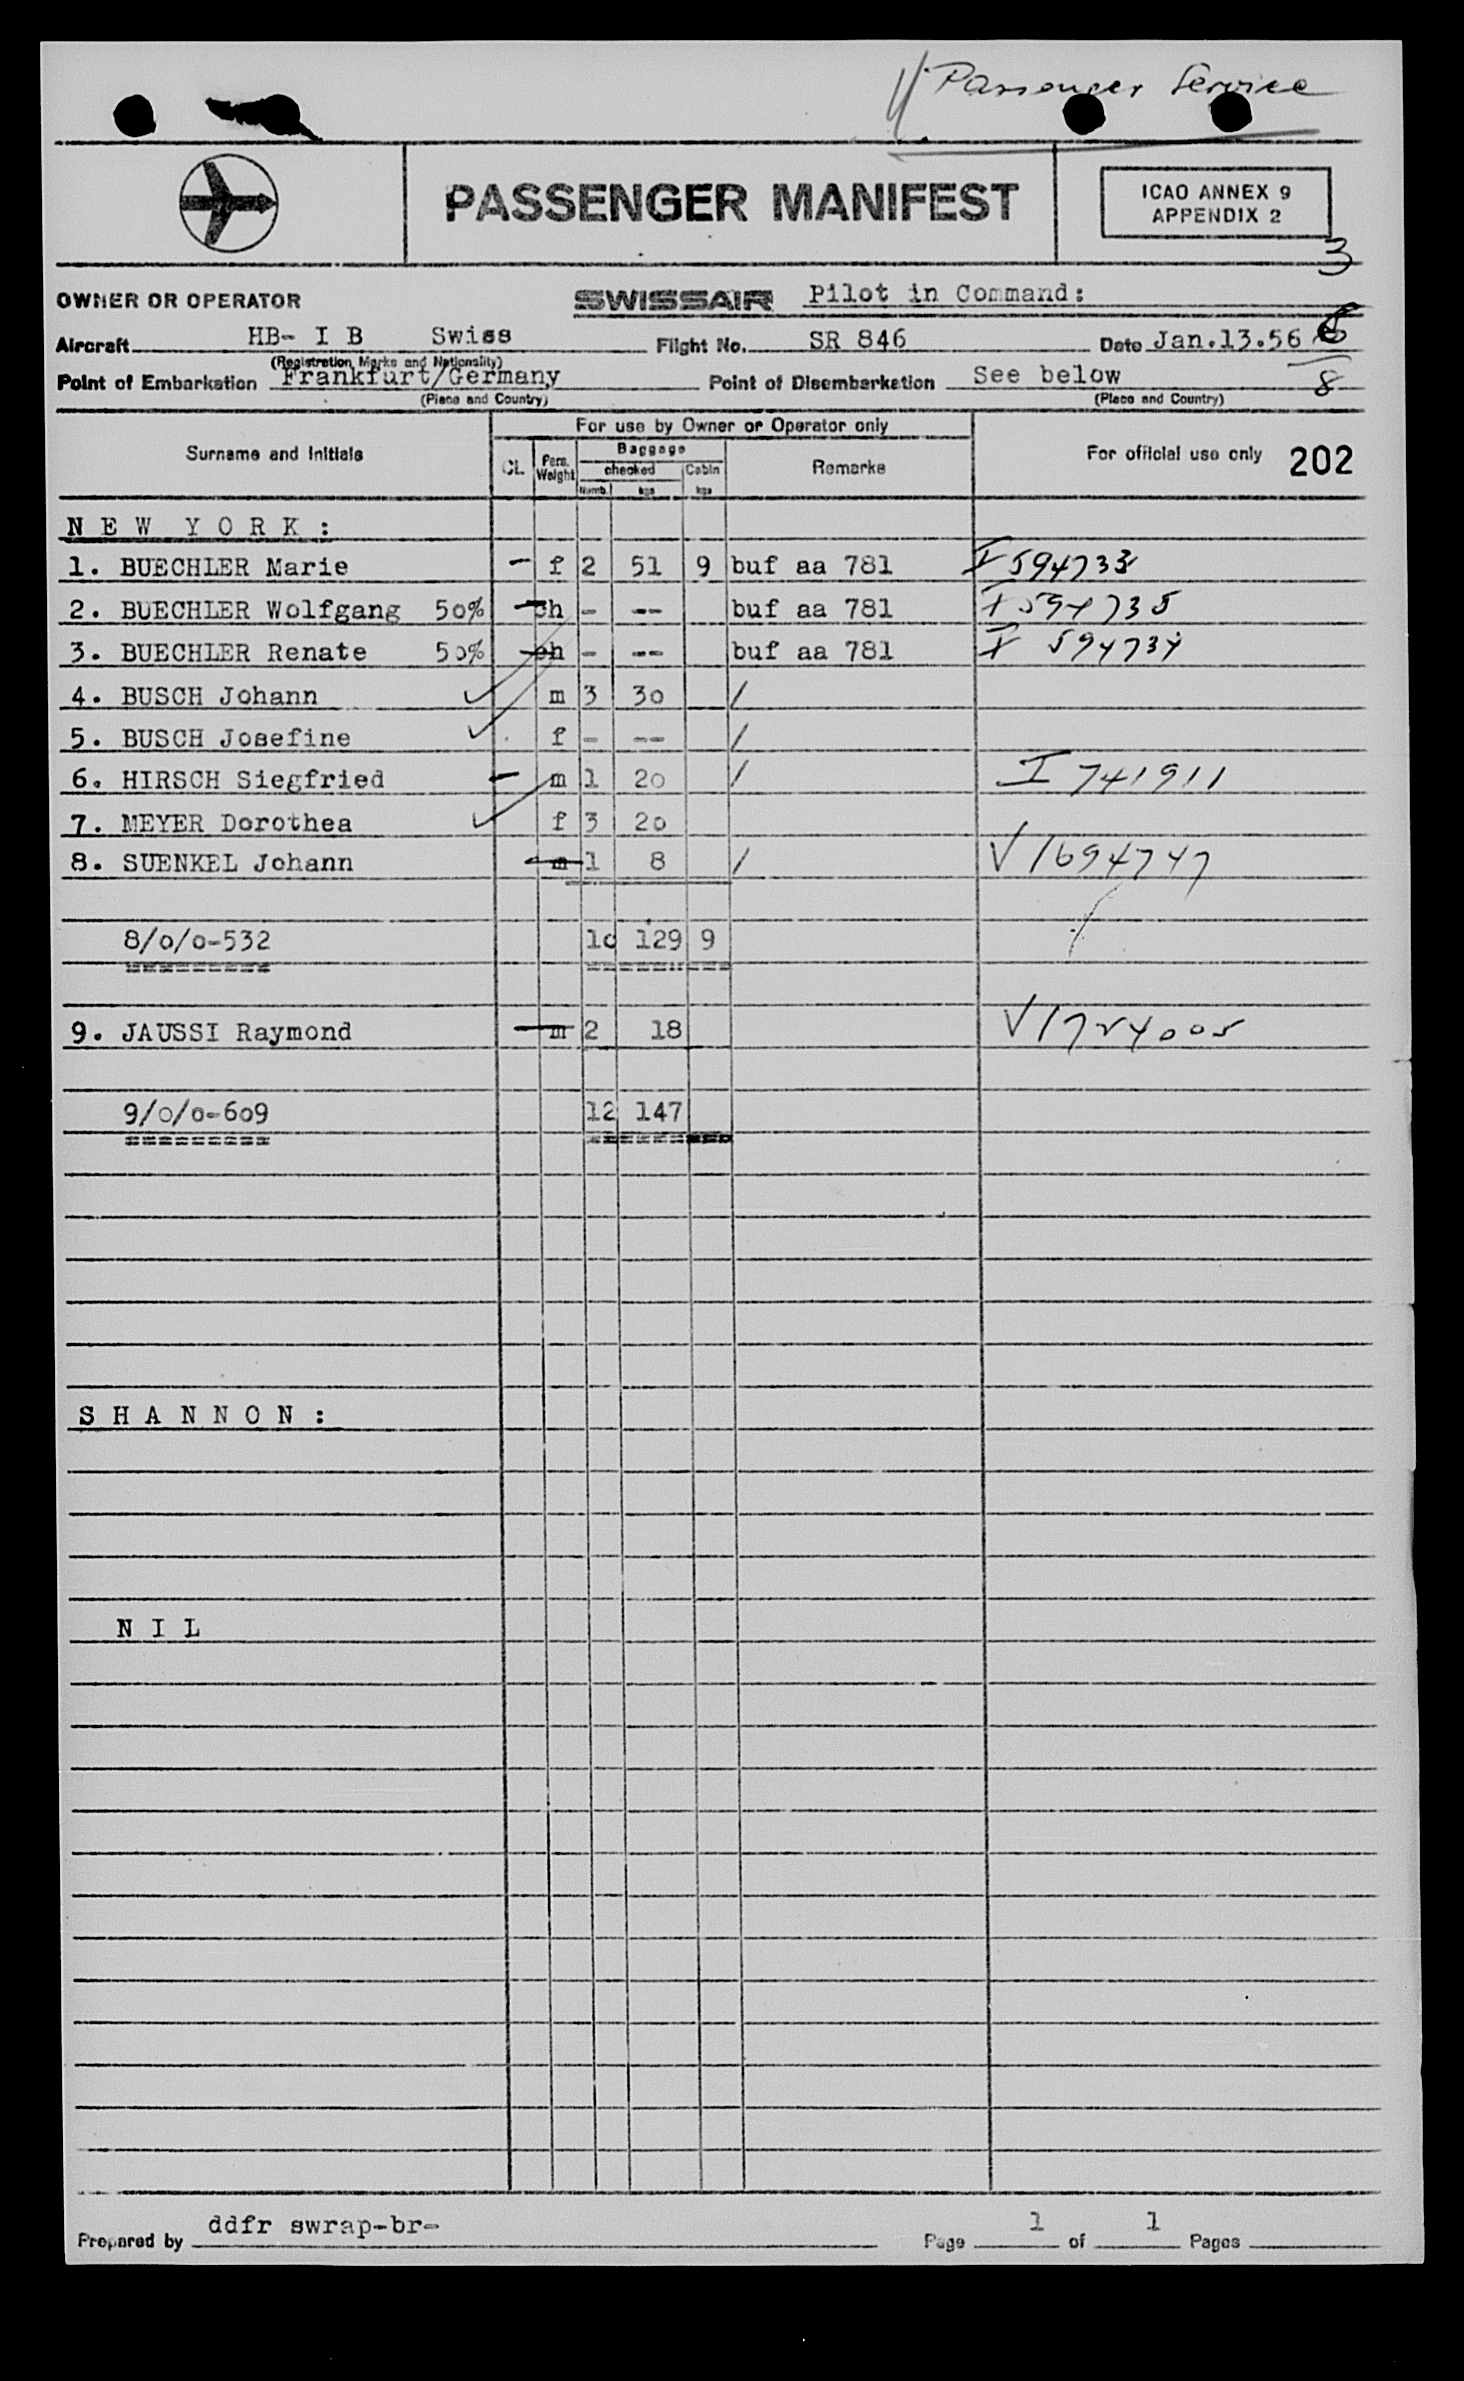 Passenger Service
PASSENGER MANIFEST
ICAO ANNEX 9
APPENDIX 2
3
OWNER OR OPERATOR SWISSAIR Pilot in Command:
Aircraft HB- I B Swiss Flight No. SR 846 Date Jan.13.56
(Registration Marks and Nationality)
Point of Embarkation Frankfurt/Germany Point of Disembarkation See below 8
(Place and Country) (Place and Country)
For use by Owner or Operator only
Surname and Initials CL. Pers. Weight Baggage Remarks For official use only 202
checked Cabin
Numb. kgs kgs
NEW YORK:
1. BUECHLER Marie - f 2 51 9 buf aa 781 I 594733
2. BUECHLER Wolfgang 50% ch - -- buf aa 781 I 594735
3. BUECHLER Renate 50% ch - -- buf aa 781 I 594734
4. BUSCH Johann m 3 30 /
5. BUSCH Josefine f - -- /
6. HIRSCH Siegfried - m 1 20 / I 741911
7. MEYER Dorothea f 3 20
8. SUENKEL Johann m 1 8 / V 1694747
8/o/o-532 10 129 9
=========
9. JAUSSI Raymond m 2 18 V 1724005
9/o/o-609 12 147
=========
SHANNON:
NIL
Prepared by ddfr swrap-br- Page 1 of 1 Pages